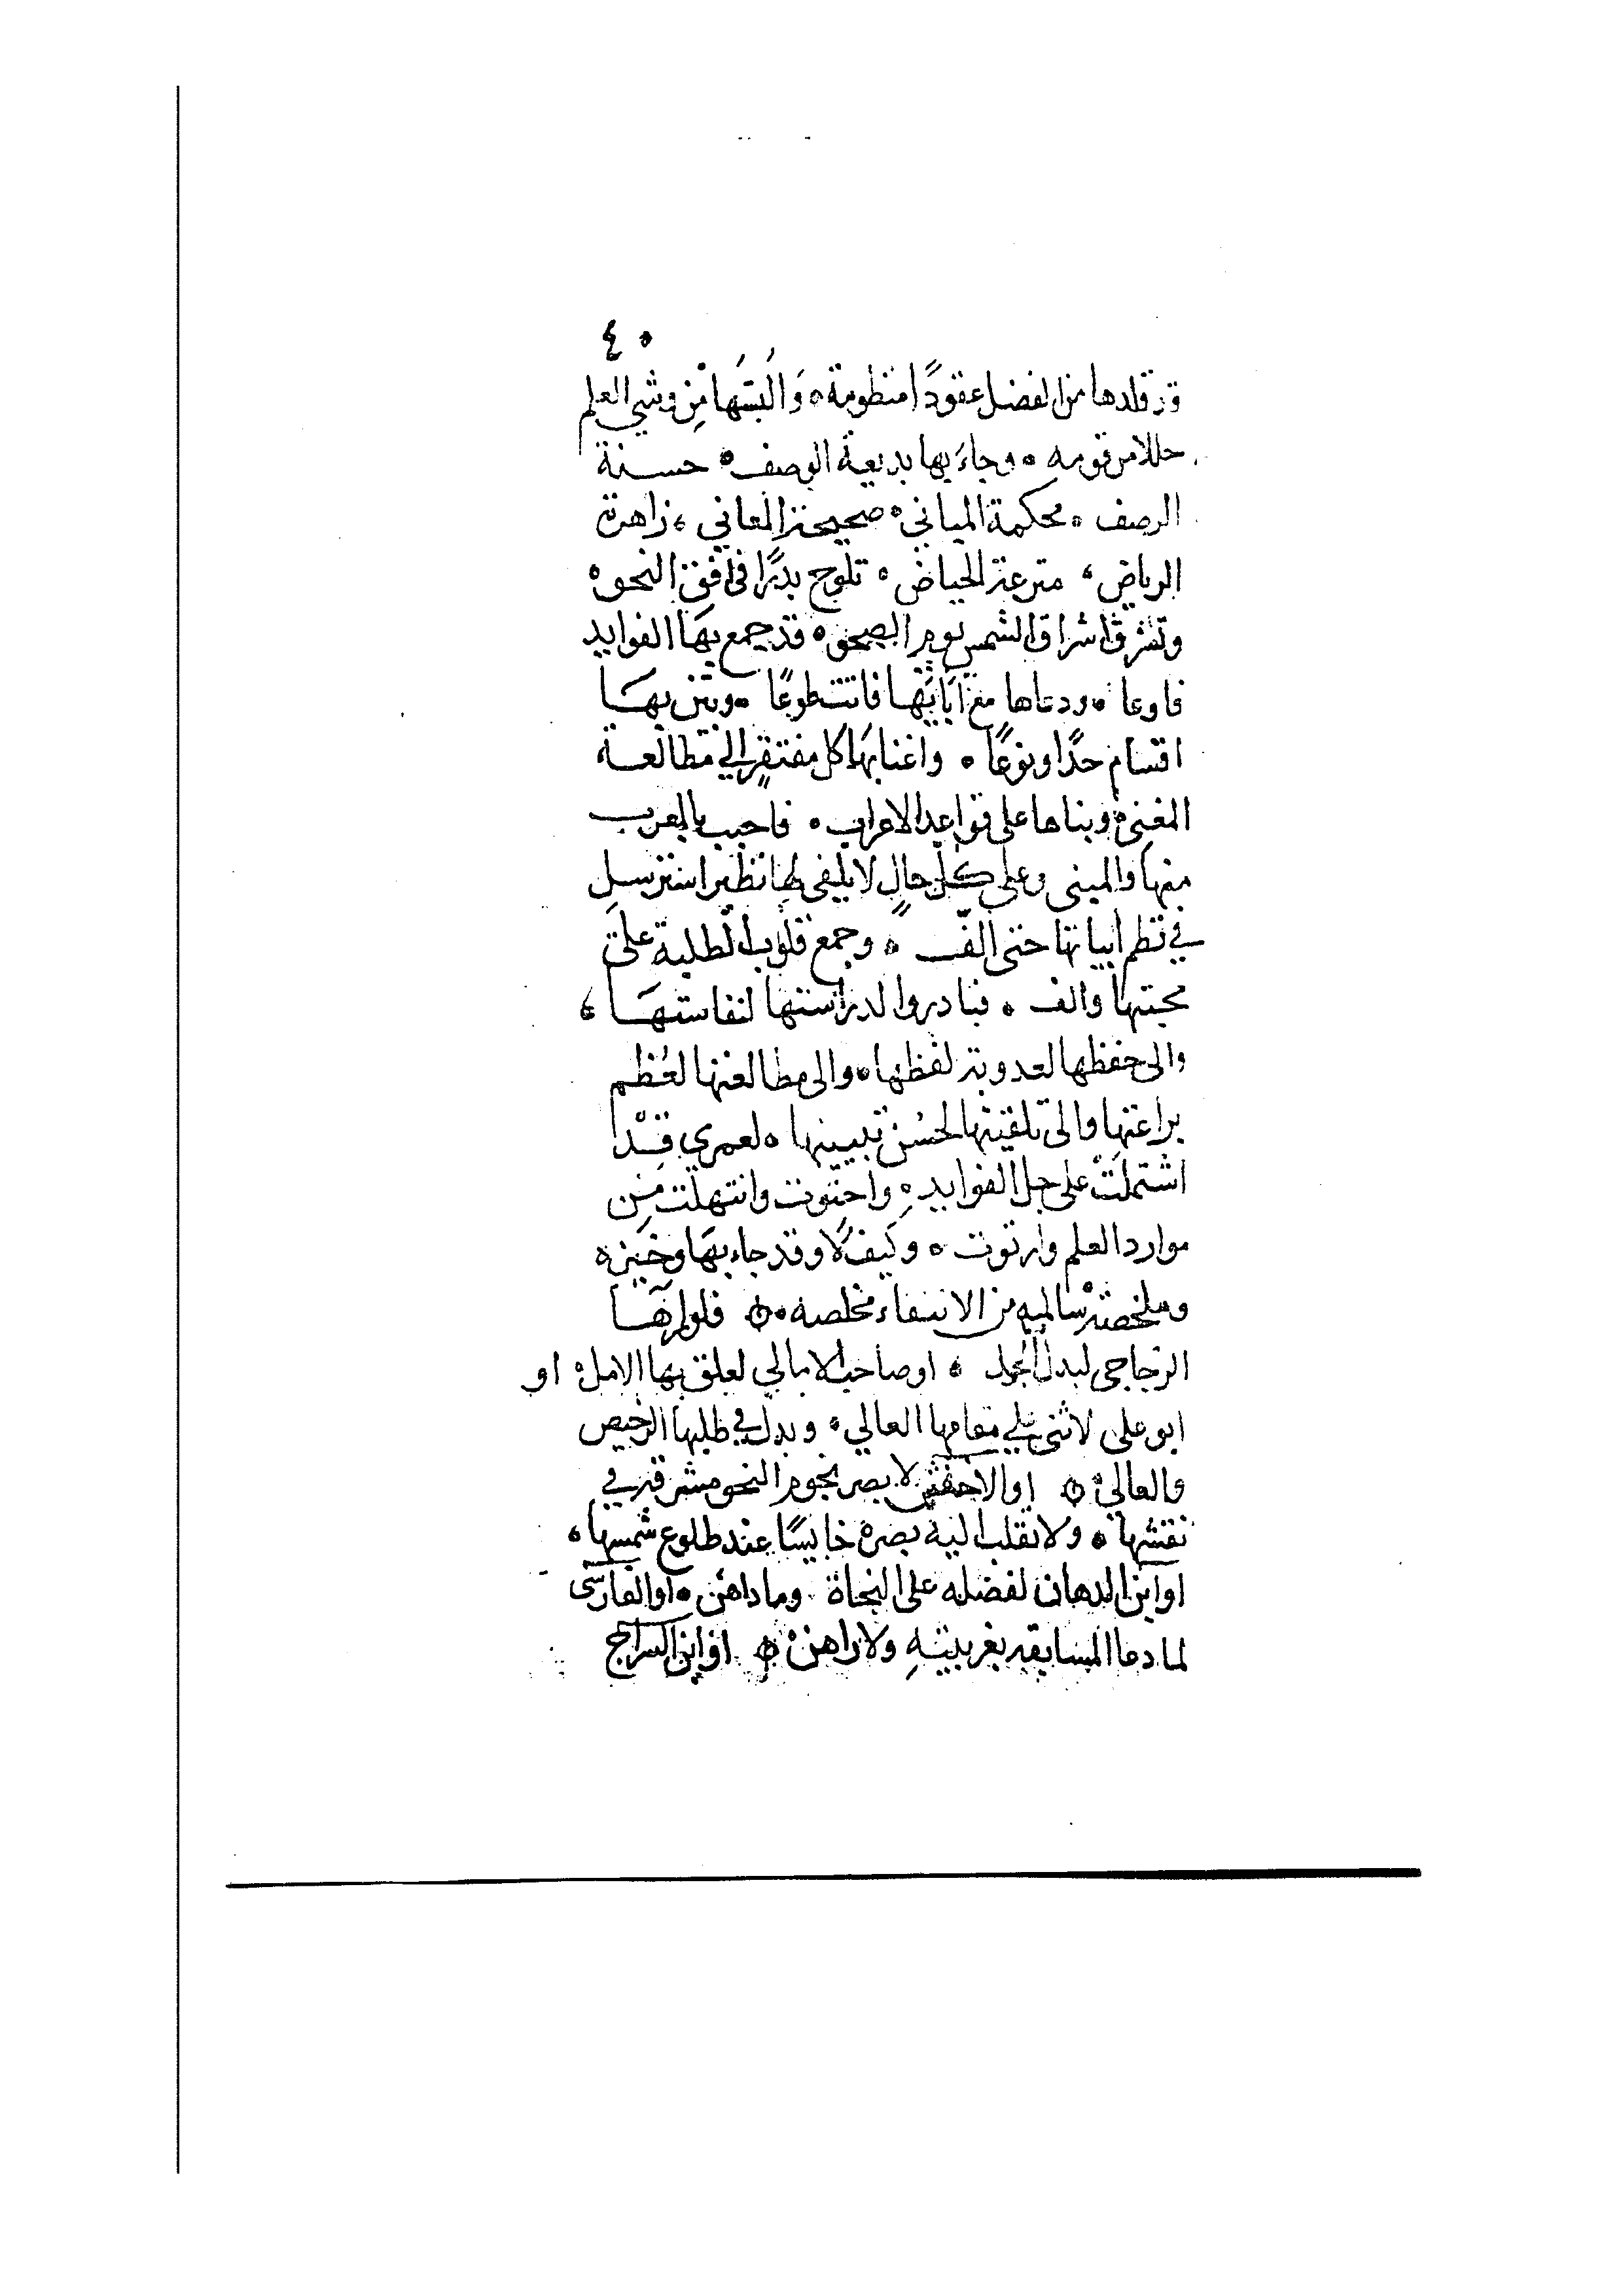 ٤٠
قد قلدها من الفضل عقودًا منظومة ۰ وَالبسَهَا مِن وشي العلم
حللا مرقومه ۰ وجاءَ بها بديعة الوصف ۰ حسنة
الرصف ۰ محكمة المباني ۰ صحيحة المعاني ، زاهرة
الرياض ، مترعة الحياض ۰ تلوح بدرًا في افق النحو ۰
وتشرق اشراق الشمس يوم الصحو ۰ قد جمع بهَا الفوايد
فاوعا ۰ ودعاها مع اِبَائِهَا فاتت طوعًا ۰ وبين بهَا
اقسام حدًا ونوعًا ۰ واغنا بهَا كل مفتقرٍ الي مطالعة
المغني ۰ وبناها على قواعد الاعراب ۰ فاحبب بالمعرب
منها والمبنى وعلى كل حالٍ لا يلفى لها نظير استرسل
في نظم ابياتها حتى الّف ۰ وجمع قلوب الطلبة على
محبتها والف ۰ فبادروا لدراستها لنفاستهَا ،
والى حفظها لعدوبة لفظها ۰ والى مطالعتها لعُظم
براعتها والى تلقيتها لحُسْن تبيينها ۰ لعمري قد
اشتملتْ على جل الفوايد ۰ واحتوت وانتهلت مِن
موارد العلم وارتوت ۰ وكيف لا وقد جاء بهَا وجيزه
وملخصة سالمه من الانتقاء مخلصه ۰ فلو رآهَا
الزجاجي لبدل الجمل ۰ او صاحب الامالي لعلق بها الامل ۰ او
ابو على لاثنى علي مقامها العالي ۰ وبدل في طلبها الرخيص
والغالي ۰ او الاخفش لابصر نجوم النحو مشرقة في
نقشها ۰ ولانقلب اليه بصره خاسِئًا عند طلوع شمسها ،
او ابن الدهان لفضله على النحاة وما داهن ۰ او الفارسى
لما دعا المسابقه بغريبتهِ ولا راهن ۰ او ابن السراج